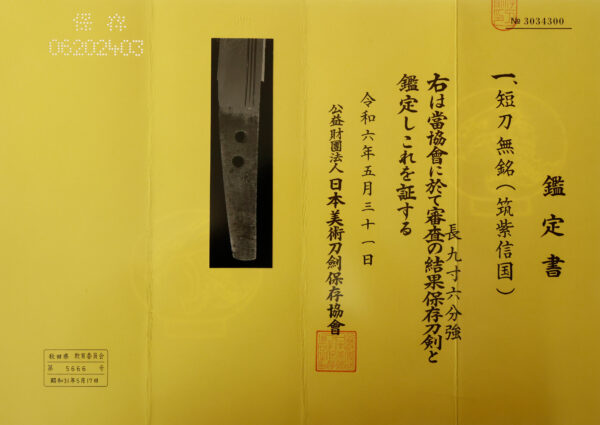 № 3034300
鑑定書
一、短刀 無銘(筑紫信国)
長 九寸六分強
右は當協會に於て審査の結果保存刀剣と
鑑定しこれを証する
令和六年五月三十一日
公益財團法人 日本美術刀劍保存協會
保存
06202403
秋田県 教育委員会
第 5666 号
昭和31年5月17日